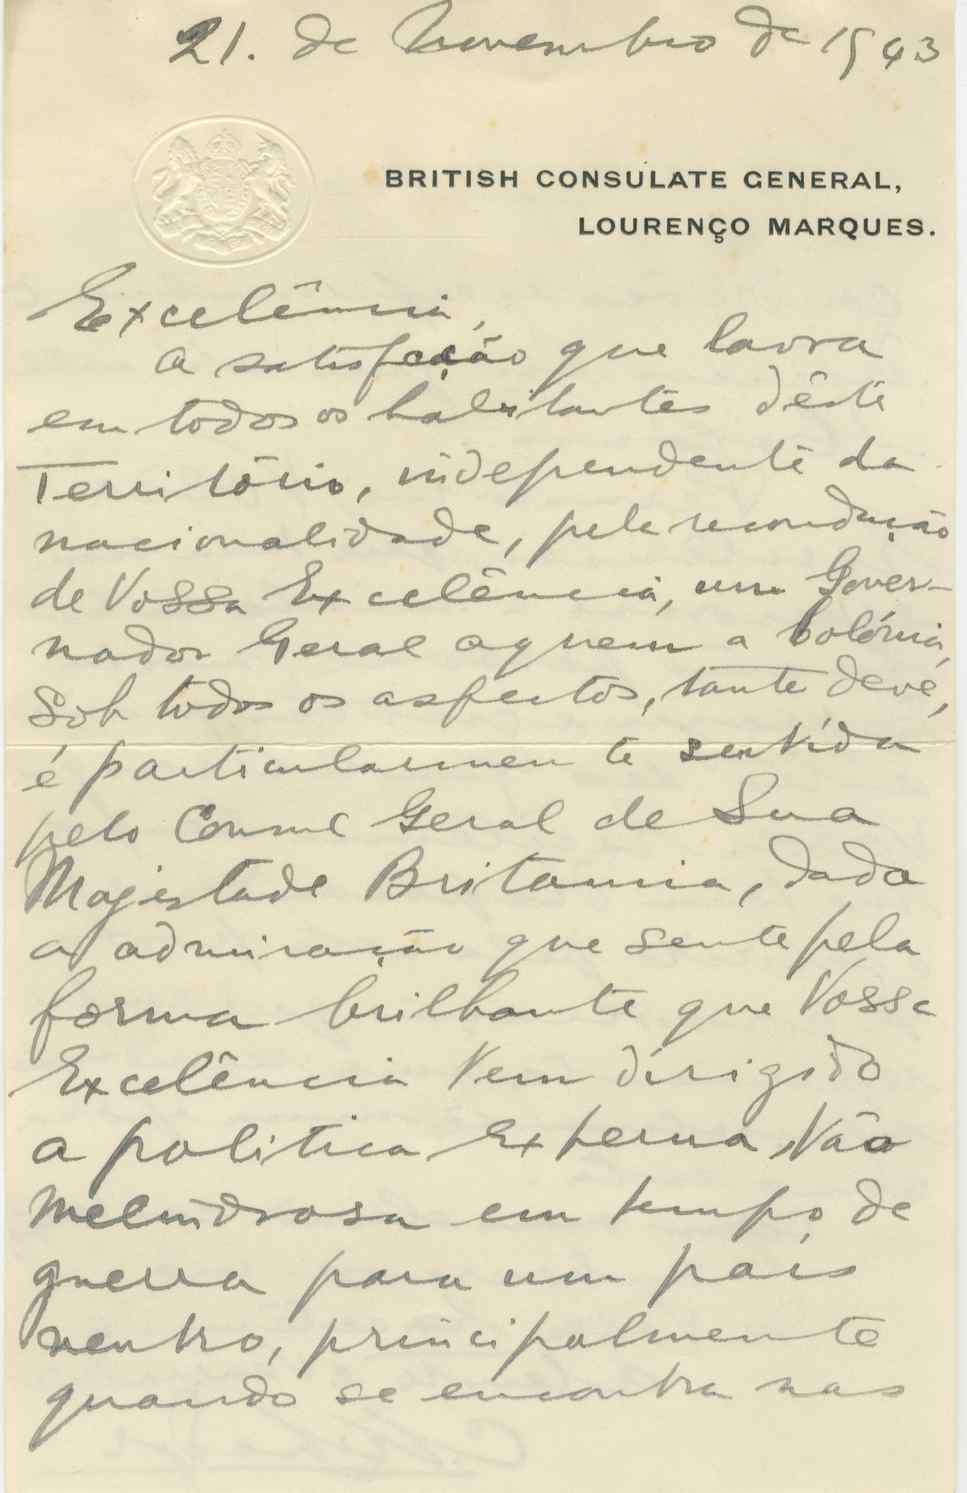 21. de Novembro de 1943
BRITISH CONSULATE GENERAL,
LOURENÇO MARQUES.
Excelência,
A satisfação que lavra
em todos os habitantes dêste
Território, independente da
nacionalidade, pela recondução
de Vossa Excelência, um Gover-
nador Geral aquem a Colónia,
sob todos os aspectos, tante deve,
é particularmente sentida
pelo Consul Geral de Sua
Majestade Britanica, dada
a admiração que sente pela
forma brilhante que Vossa
Excelência vem dirigido
a politica externa, tão
melindrosa em tempo de
guerra para um país
neutro, principalmente
quando se encontra nas